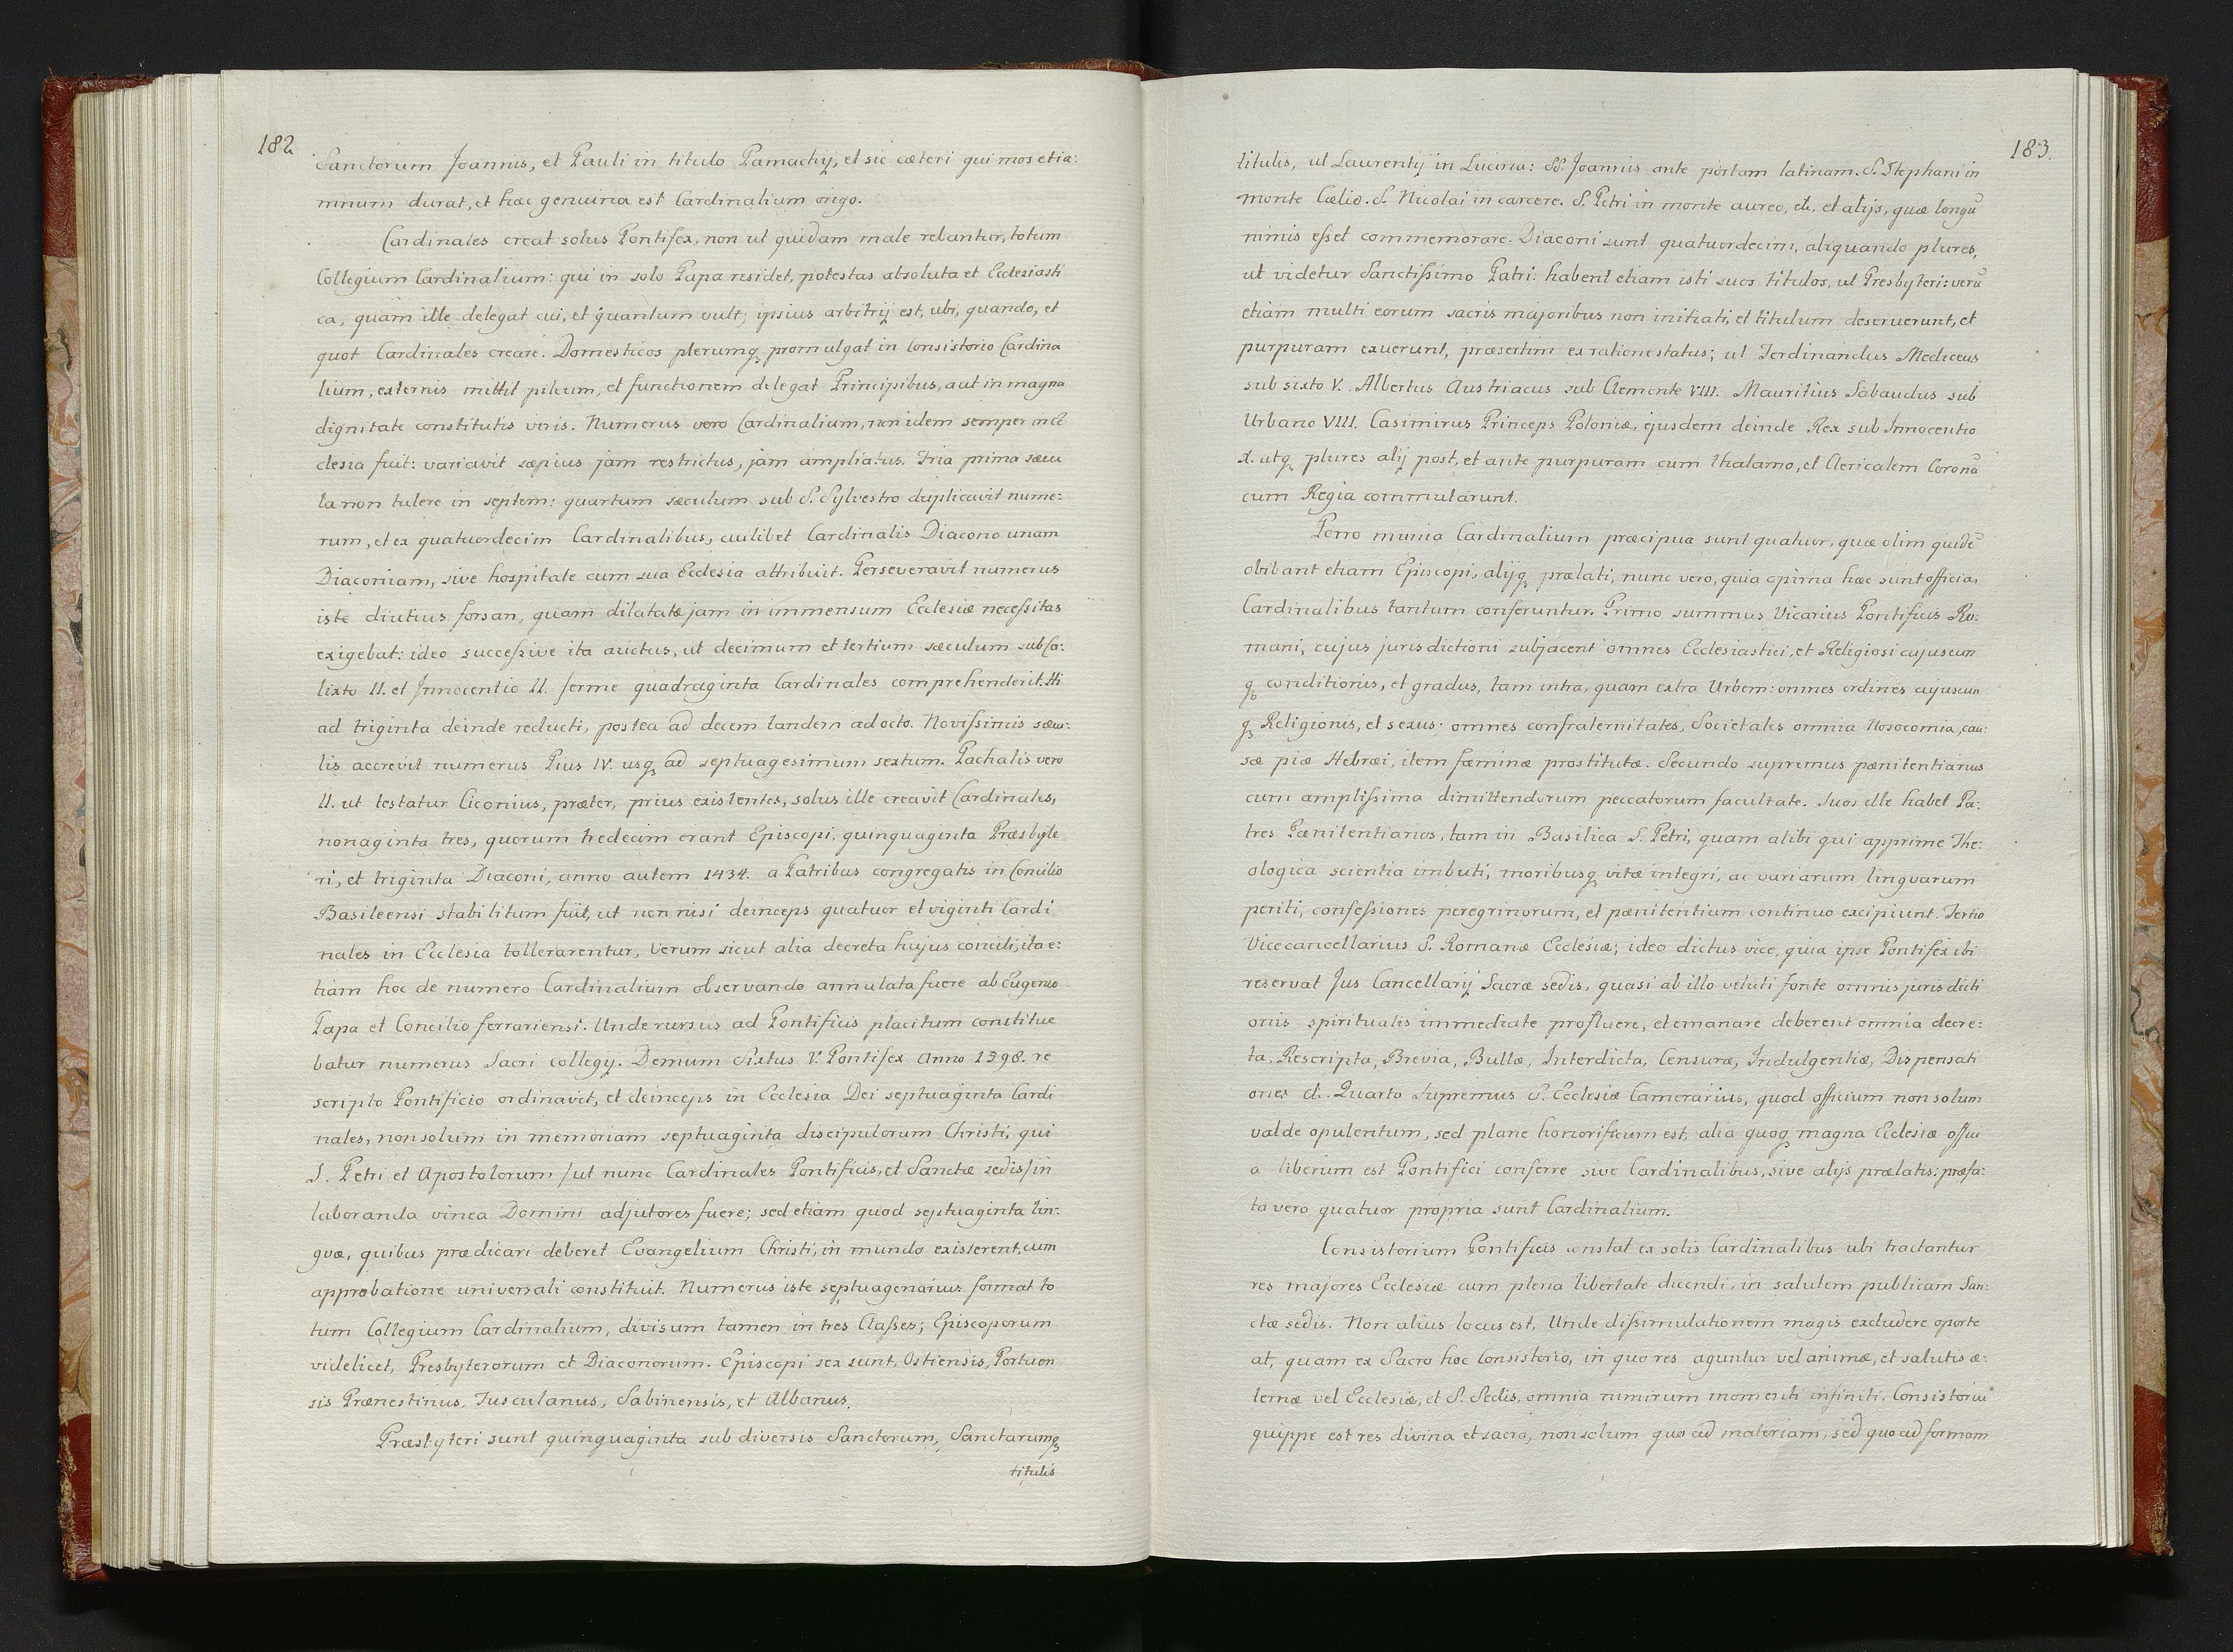 182
Sanctorum Joannis, et Pauli in titulo Pamachij, et sic cæteri qui mos etia:
mnum durat, et hæc genuina est Cardinalium origo.
Cardinales creat solus Pontifex, non ut quidam male rebantur, totum
Collegium Cardinalium: qui in solo Papa residet, potestas absoluta et Ecclesiasti
ca, quam ille delegat cui, et quantum vult; ipsius arbitrij est, ubi, quando, et
quot Cardinales creare. Domesticos plerumq₃ promulgat in Consistorio Cardina
lium, externis mittit pileum, et functionem delegat Principibus, aut in magna
dignitate constitutis viris. Numerus vero Cardinalium, non idem semper in Ec
clesia fuit: variavit sæpius jam restrictus, jam ampliatus. Tria prima sæcu
la non tulere in septem: quartum sæculum sub S. Sylvestro duplicavit nume:
rum, et ex quatuordecim Cardinalibus, cuilibet Cardinalis Diacono unam
Diaconiam, sive hospitale cum sua Ecclesia attribuit. Perseveravit numerus
iste diutius forsan, quam dilatatæ jam in immensum Ecclesiæ necessitas
exigebat: ideo successive ita auctus, ut decimum et tertium sæculum sub Ca:
lixto II. et Innocentio II. ferme quadraginta Cardinales comprehenderit. Hi
ad triginta deinde reducti, postea ad decem tandem ad octo. Novissimis sæcu:
lis accrevit numerus Pius IV. usq₃ ad septuagesimum sextum. Pachalis vero
II. ut testatur Ciconius, præter, prius existentes, solus ille creavit Cardinales,
nonaginta tres, quorum tredecim erant Episcopi, quinquaginta Præsbyte
ri, et triginta Diaconi, anno autem 1434. a Patribus congregatis in Concilio
Basileensi stabilitum fuit, ut non nisi deinceps quatuor et viginti Cardi
nales in Ecclesia tollerarentur, Verum sicut alia decreta hujus concilij, ita e:
tiam hoc de numero Cardinalium observando annulata fuere ab Eugenio
Papa et Concilio ferrariensi. Unde rursus ad Pontificis placitum constitue
batur numerus Sacri collegij. Demum Sixtus V. Pontifex Anno 1398. re
scripto Pontificio ordinavit, et deinceps in Ecclesia Dei septuaginta Cardi
nales, non solum in memoriam septuaginta discipulorum Christi, qui
S. Petri et Apostolorum /ut nunc Cardinales Pontificis, et Sanctæ sedis/ in
laboranda vinea Domini adjutores fuere; sed etiam quod septuaginta lin:
guæ, quibus prædicari deberet Evangelium Christi, in mundo existerent, cum
approbatione universali constituit. Numerus iste septuagenarius format to
tum Collegium Cardinalium, divisum tamen in tres Classes; Episcoporum
videlicet, Presbyterorum et Diaconorum. Episcopi sex sunt, Ostiensis, Portuen
sis Prænestinus, Tusculanus, Sabinensis, et Albanus.
Præsbyteri sunt quinquaginta sub diversis Sanctorum, Sanctarumq₃
titulis
183.
titulis, ut Laurentij in Lucina: SS. Joannis ante portam latinam. S. Stephani in
monte Cælio. S. Nicolai in carcere. S. Petri in monte aureo, etc. et alijs, quæ longū
nimis esset commemorare. Diaconi sunt quatuordecim, aliquando plures,
ut videtur Sanctissimo Patri: habent etiam isti suos titulos, ut Presbyteri: verū
etiam multi eorum sacris majoribus non initiati, et titulum deseruerunt, et
purpuram exuerunt, præsertim ex ratione status; ut Ferdinandus Mediceus
sub sixto V. Albertus Austriacus sub Clemente VIII. Mauritius Sabaudus sub
Urbano VIII. Casimirus Princeps Poloniæ, ejusdem deinde Rex sub Innocentio
X. atq₃ plures alij post, et ante purpuram cum thalamo, et Clericalem Coronā
cum Regia commutarunt.
Porro munia Cardinalium præcipua sunt quatuor, quæ olim quidē
obibant etiam Episcopi, alijq₃ prælati, nunc vero, quia opima hæc sunt officia,
Cardinalibus tantum conferuntur. Primo summus Vicarius Pontificis Ro:
mani, cujus jurisdictioni subjacent omnes Ecclesiastici, et Religiosi cujuscun
q₃ conditionis, et gradus, tam intra, quam extra Urbem: omnes ordines cujuscun
q₃ Religionis, et sexus; omnes confraternitates, Societates omnia Nosocomia, cau:
sæ piæ Hebræi, item fæminæ prostitutæ. Secundo supremus pænitentiarius
cum amplissima dimittendorum peccatorum facultate. Suos ille habet Pa:
tres Pænitentiarios, tam in Basilica S. Petri, quam alibi qui apprime The:
ologica scientia imbuti, moribusq₃ vitæ integri, ac variarum linguarum
periti, confessiones peregrinorum, et pænitentium continuo excipiunt. Tertio
Vicecancellarius S. Romanæ Ecclesiæ; ideo dictus vice, quia ipse Pontifex ibi
reservat Jus Cancellarij Sacræ sedis, quasi ab illo veluti fonte omnis jurisdicti
onis spiritualis immediate profluere, et emanare deberent omnia decre:
ta, Rescripta, Brevia, Bullæ, Interdicta, Censuræ, Indulgentiæ, Dispensati
ones etc. Quarto Supremus S. Ecclesiæ Camerarius, quod officium non solum
valde opulentum, sed plane honorificum est, alia quoq₃ magna Ecclesiæ offici
a liberum est Pontifici conferre sive Cardinalibus, sive alijs prælatis: præfa:
ta vero quatuor propria sunt Cardinalium.
Consistorium Pontificis constat ex solis Cardinalibus ubi tractantur
res majores Ecclesiæ cum plena libertate dicendi, in salutem publicam San:
ctæ sedis. Non alius locus est, Unde dissimulationem magis excludere oporte
at, quam ex Sacro hoc Consistorio, in quo res aguntur vel animæ, et salutis æ:
ternæ vel Ecclesiæ, et S. Sedis, omnia nimirum momenti infiniti. Consistoriū
quippe est res divina et sacra, non solum quo ad materiam, sed quo ad formam